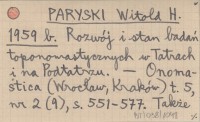 PARYSKI Witold H.
1959 b. Rozwój i stan badań
toponomastycznych w Tatrach
i na Podtatrzu. — Onoma-
stica (Wrocław, Kraków) t. 5,
nr 2 (9), s. 551-577. Także